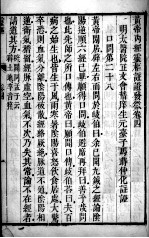 黃帝內經靈樞註證發微卷四
明太醫院正文會稽庠生元臺子馬蒔仲化註證
口問第二十八
黃帝閒居辟左右而問於岐伯曰余已聞九鍼之經論陰
陽逆順六經已畢願得口問岐伯避席再拜曰善乎哉問
也此先師之所口傳也黃帝曰願聞口傳岐伯答曰夫百
病之始生也皆生於風雨寒暑陰陽喜怒飲食居處大驚
卒恐則血氣分離陰陽破敗經絡厥絕脈道不通陰陽相
逆衛氣稽留經脈虛空血氣不次乃失其常論不在經者
請道其方